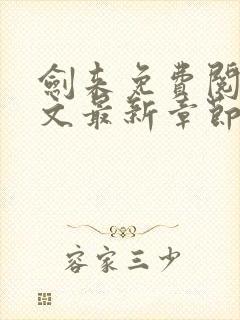 劍來免費閱
文最新章節
容家三少